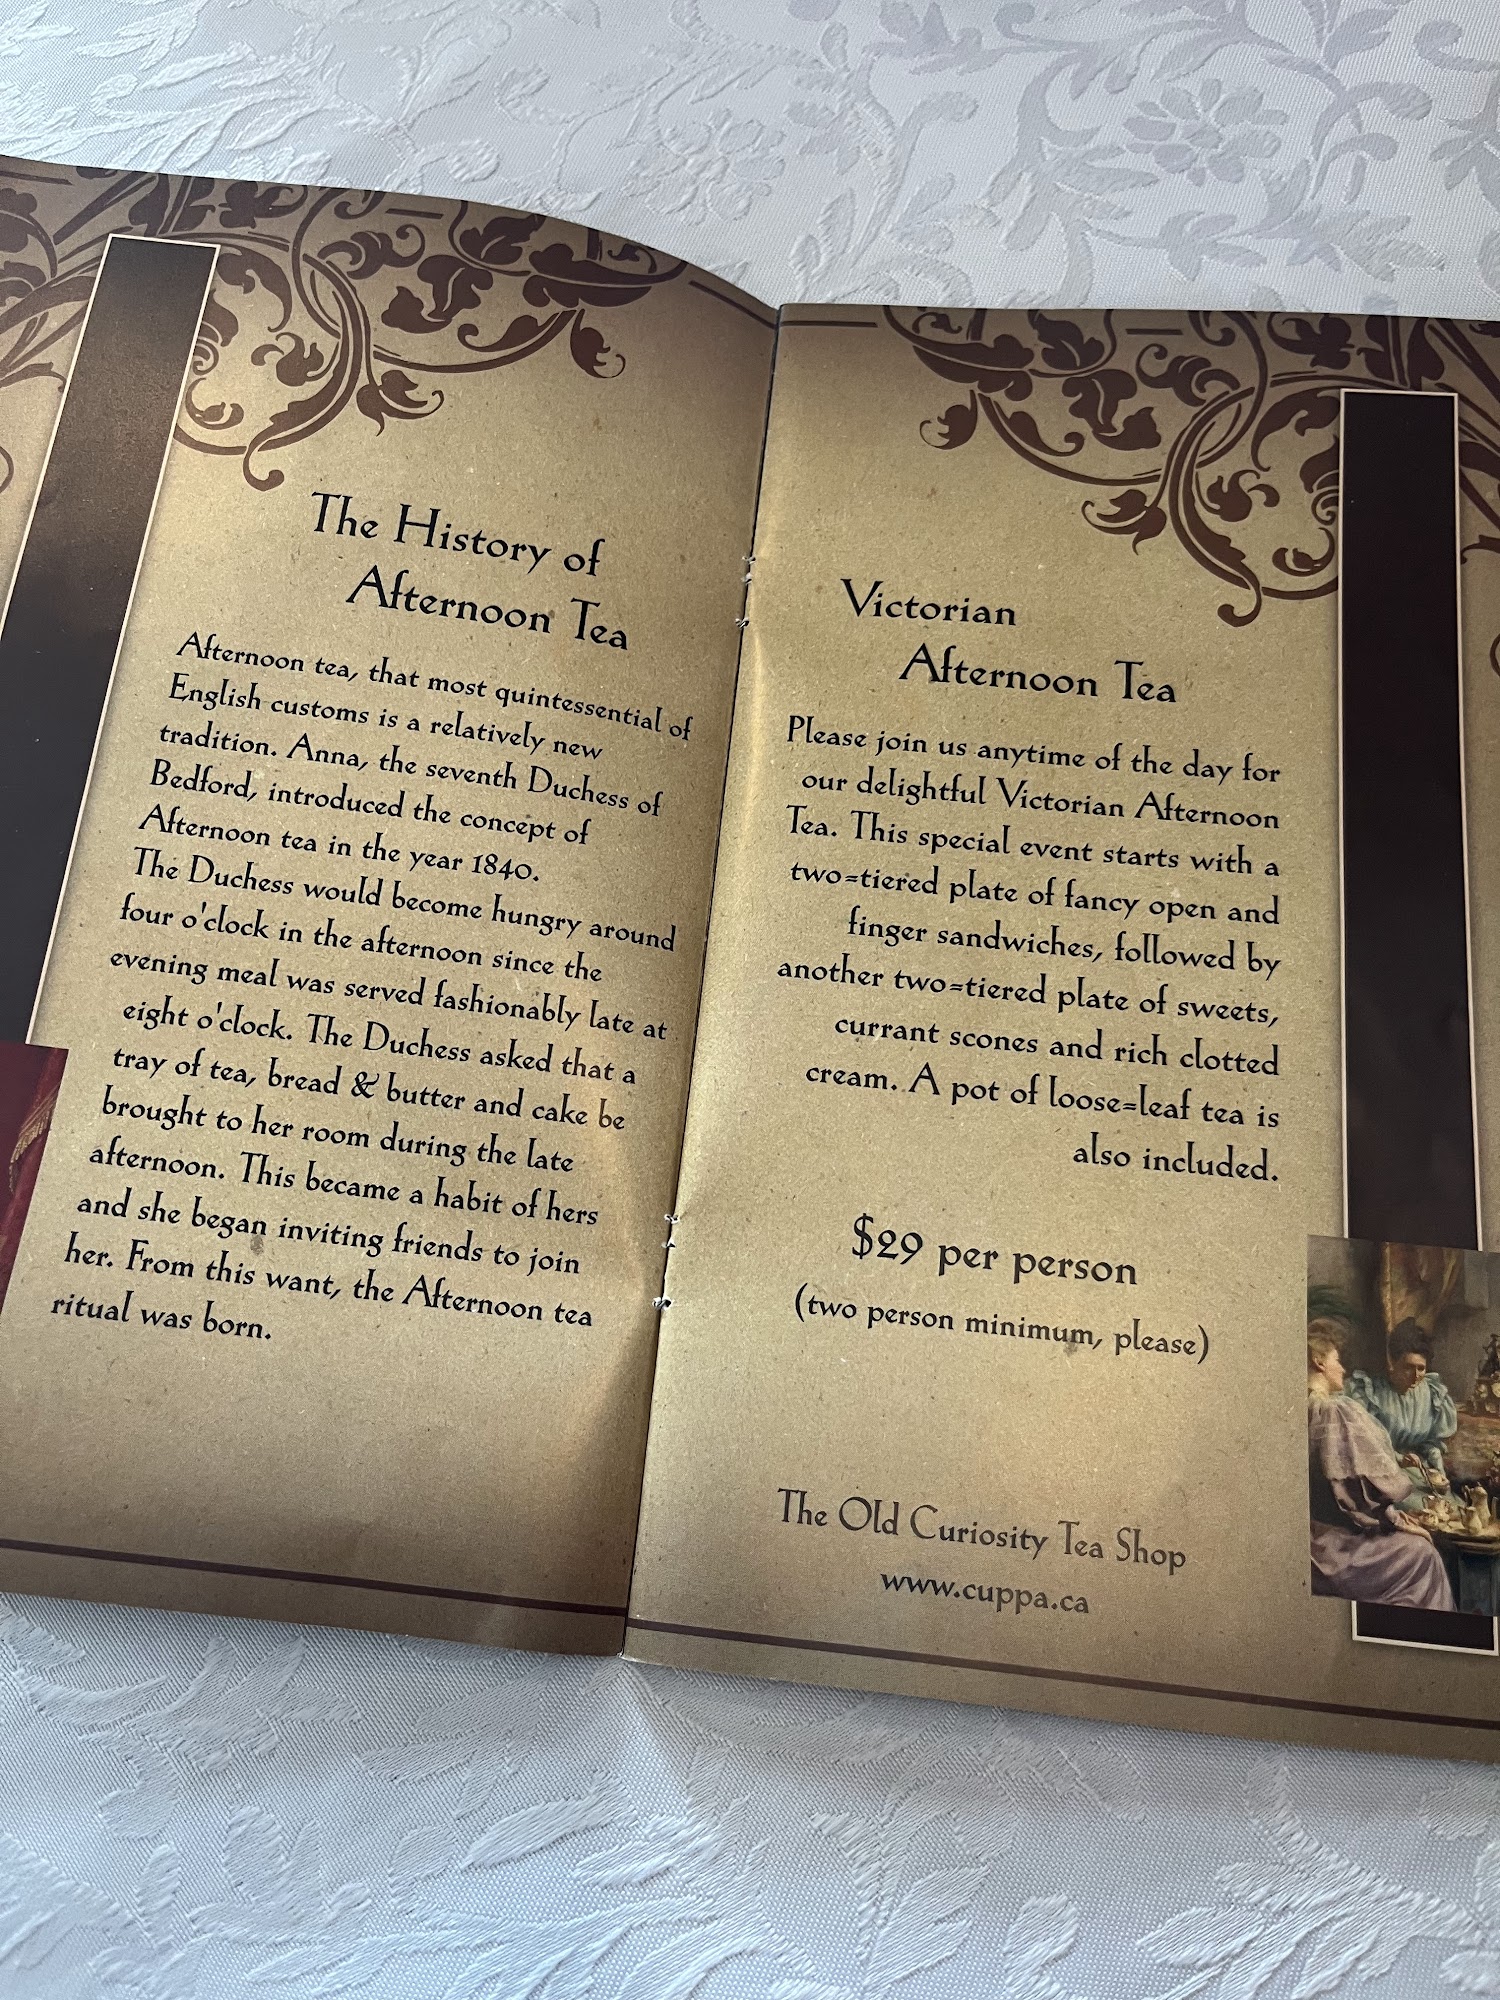 The History of
Afternoon Tea
Afternoon tea, that most quintessential of
English customs is a relatively new
tradition. Anna, the seventh Duchess of
Bedford, introduced the concept of
Afternoon tea in the year 1840.
The Duchess would become hungry around
four o'clock in the afternoon since the
evening meal was served fashionably late at
eight o'clock. The Duchess asked that a
tray of tea, bread & butter and cake be
brought to her room during the late
afternoon. This became a habit of hers
and she began inviting friends to join
her. From this want, the Afternoon tea
ritual was born.
Victorian
Afternoon Tea
Please join us anytime of the day for
our delightful Victorian Afternoon
Tea. This special event starts with a
two=tiered plate of fancy open and
finger sandwiches, followed by
another two=tiered plate of sweets,
currant scones and rich clotted
cream. A pot of loose=leaf tea is
also included.
$29 per person
(two person minimum, please)
The Old Curiosity Tea Shop
www.cuppa.ca